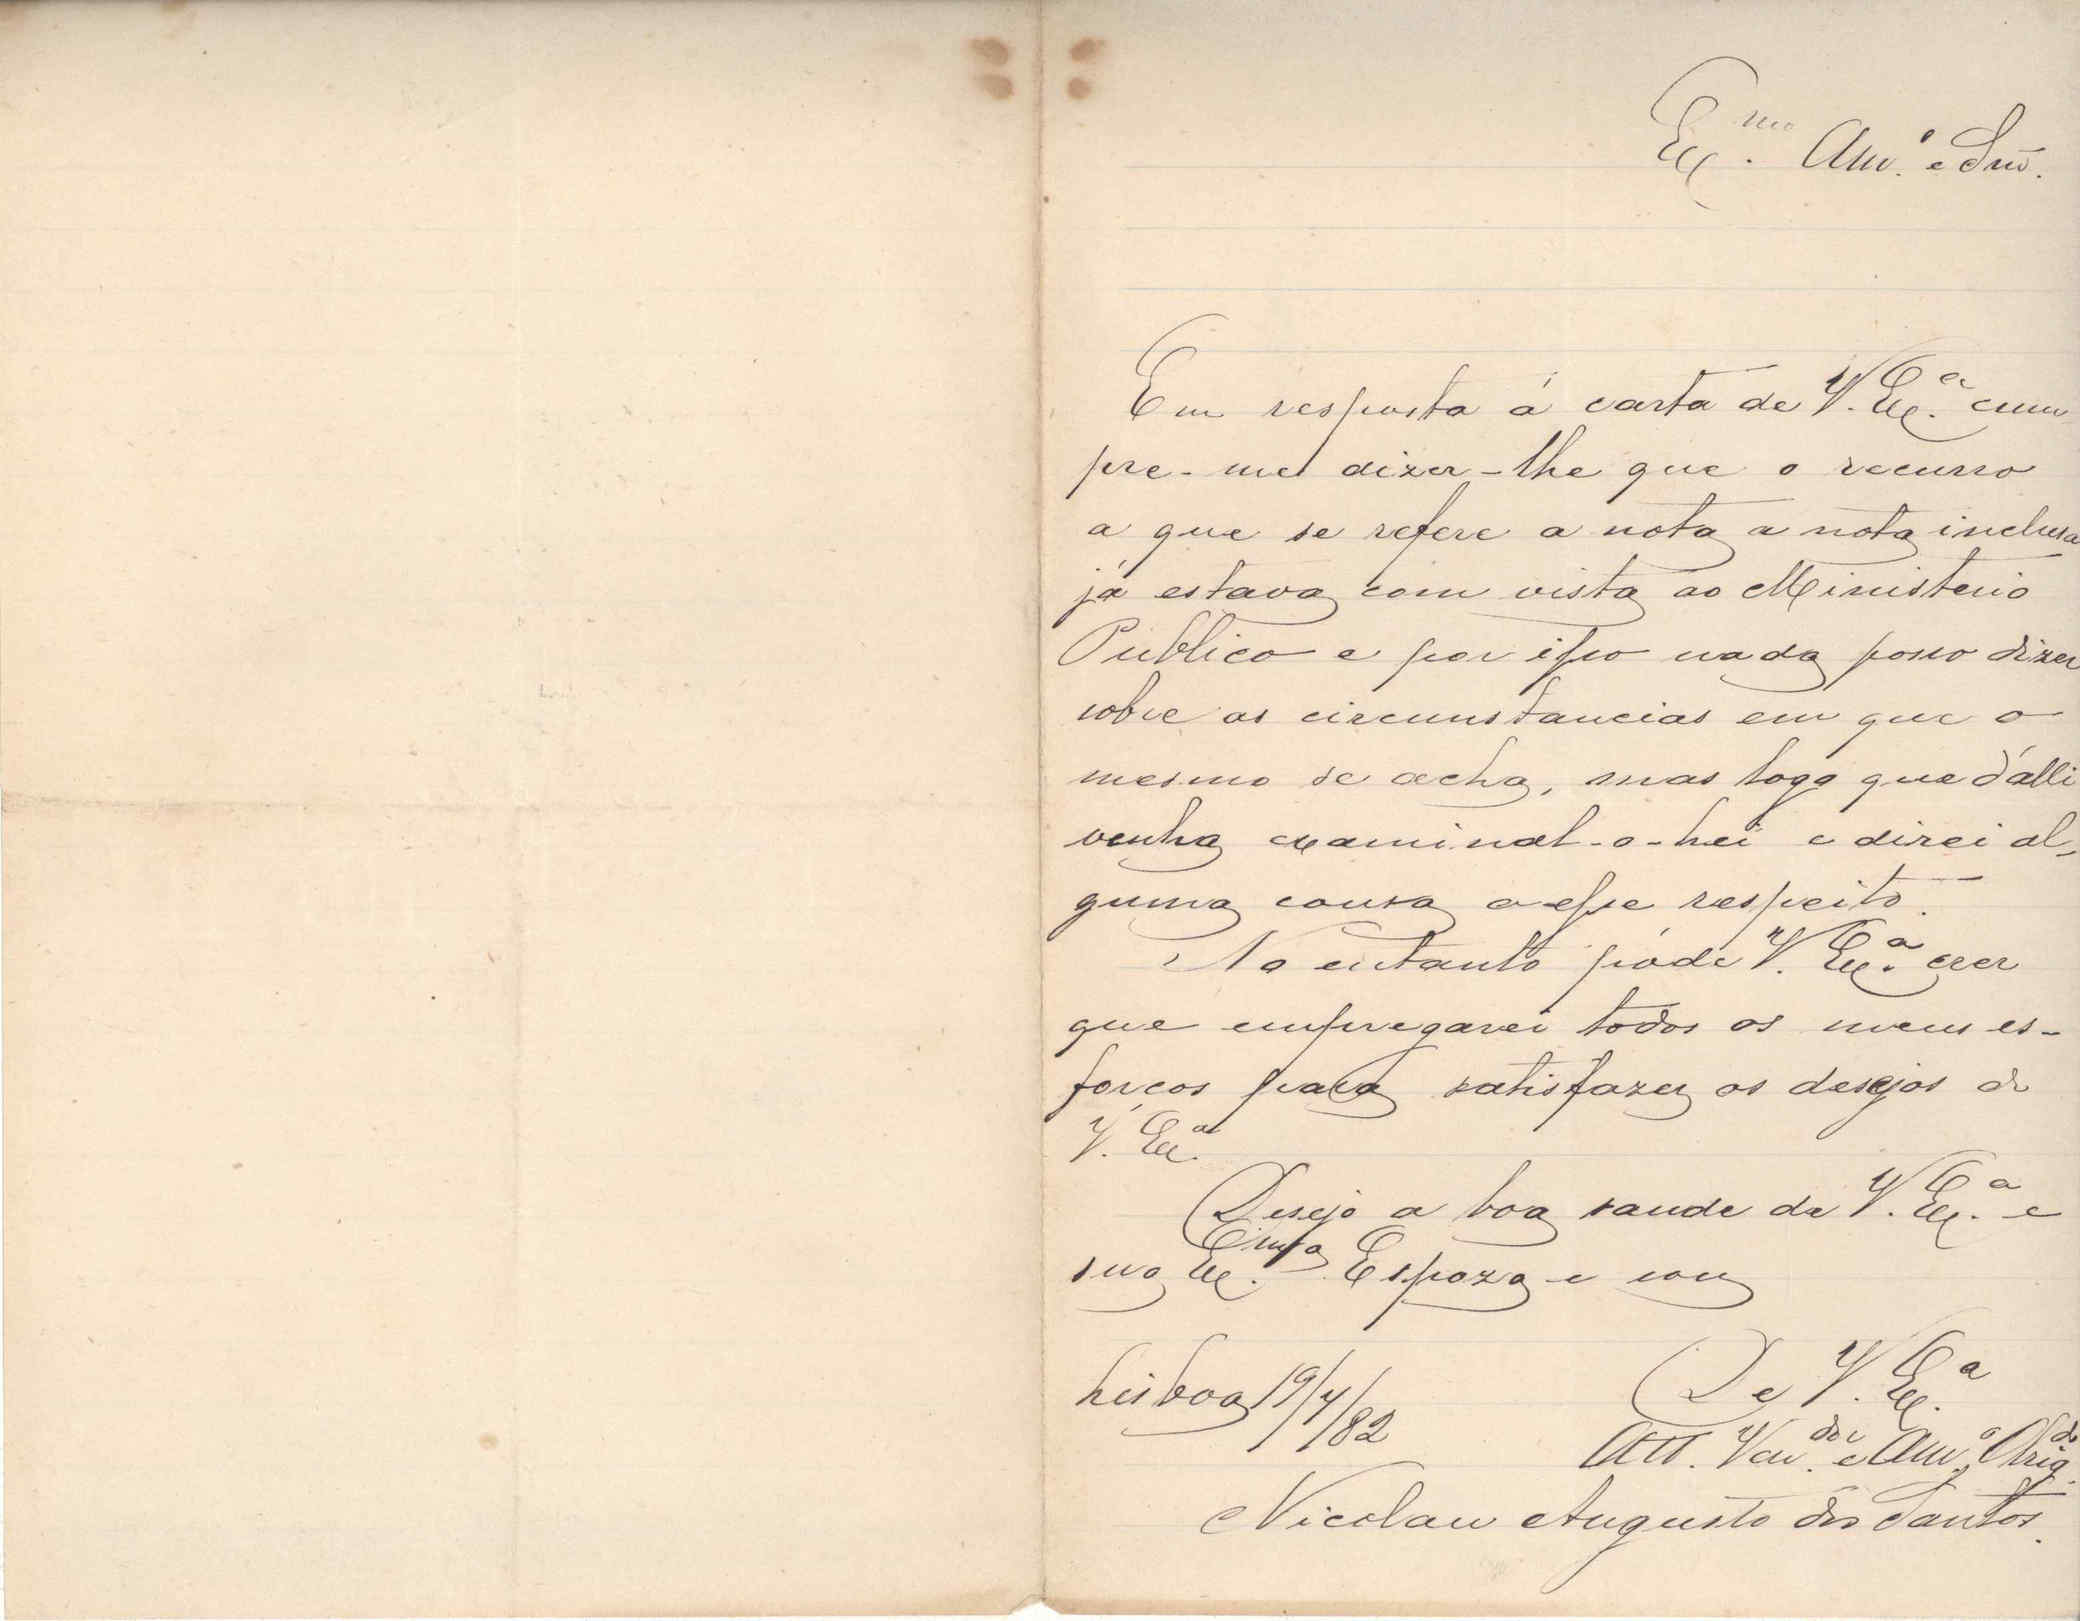 Ex.mo Am.o e Snr.
Em resposta á carta de V. Ex.a cum
pre-me dizer-lhe que o recurso
a que se refere a nota a nota inclusa
já estava com vista ao Ministerio
Publico e por isso nada posso dizer
sobre as circumstancias em que o
mesmo se acha, mas logo que d'alli
venha examinal-o-hei e direi al-
guma cousa a esse respeito.
No entanto póde V. Ex.a crer
que empregarei todos os meus es-
forços para satisfazer os desejos de
V. Ex.a
Desejo a boa saude de V. Ex.a e
sua Ex.ma Espoza e sou
De V. Ex.a
Lisboa 19/4/82
Att. Ven.dor e Am.o Obrig.do
Nicolau Augusto dos Santos.